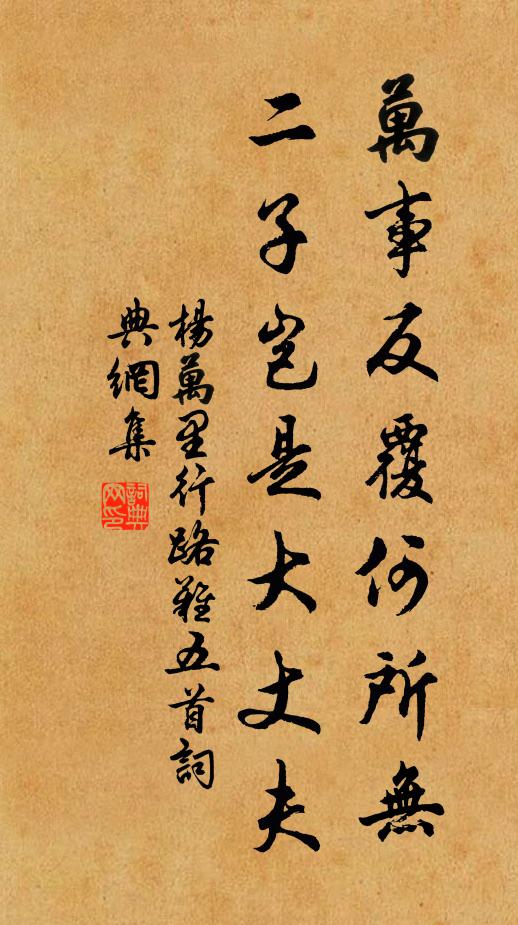 萬事反覆何所無
二子豈是大丈夫
楊萬里行路難五首詞
典網集
詞典網印